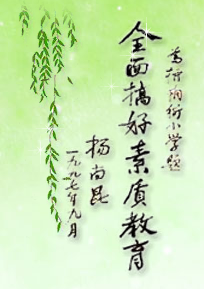 为小学题
全面搞好素质教育
杨尚昆
一九九七年九月